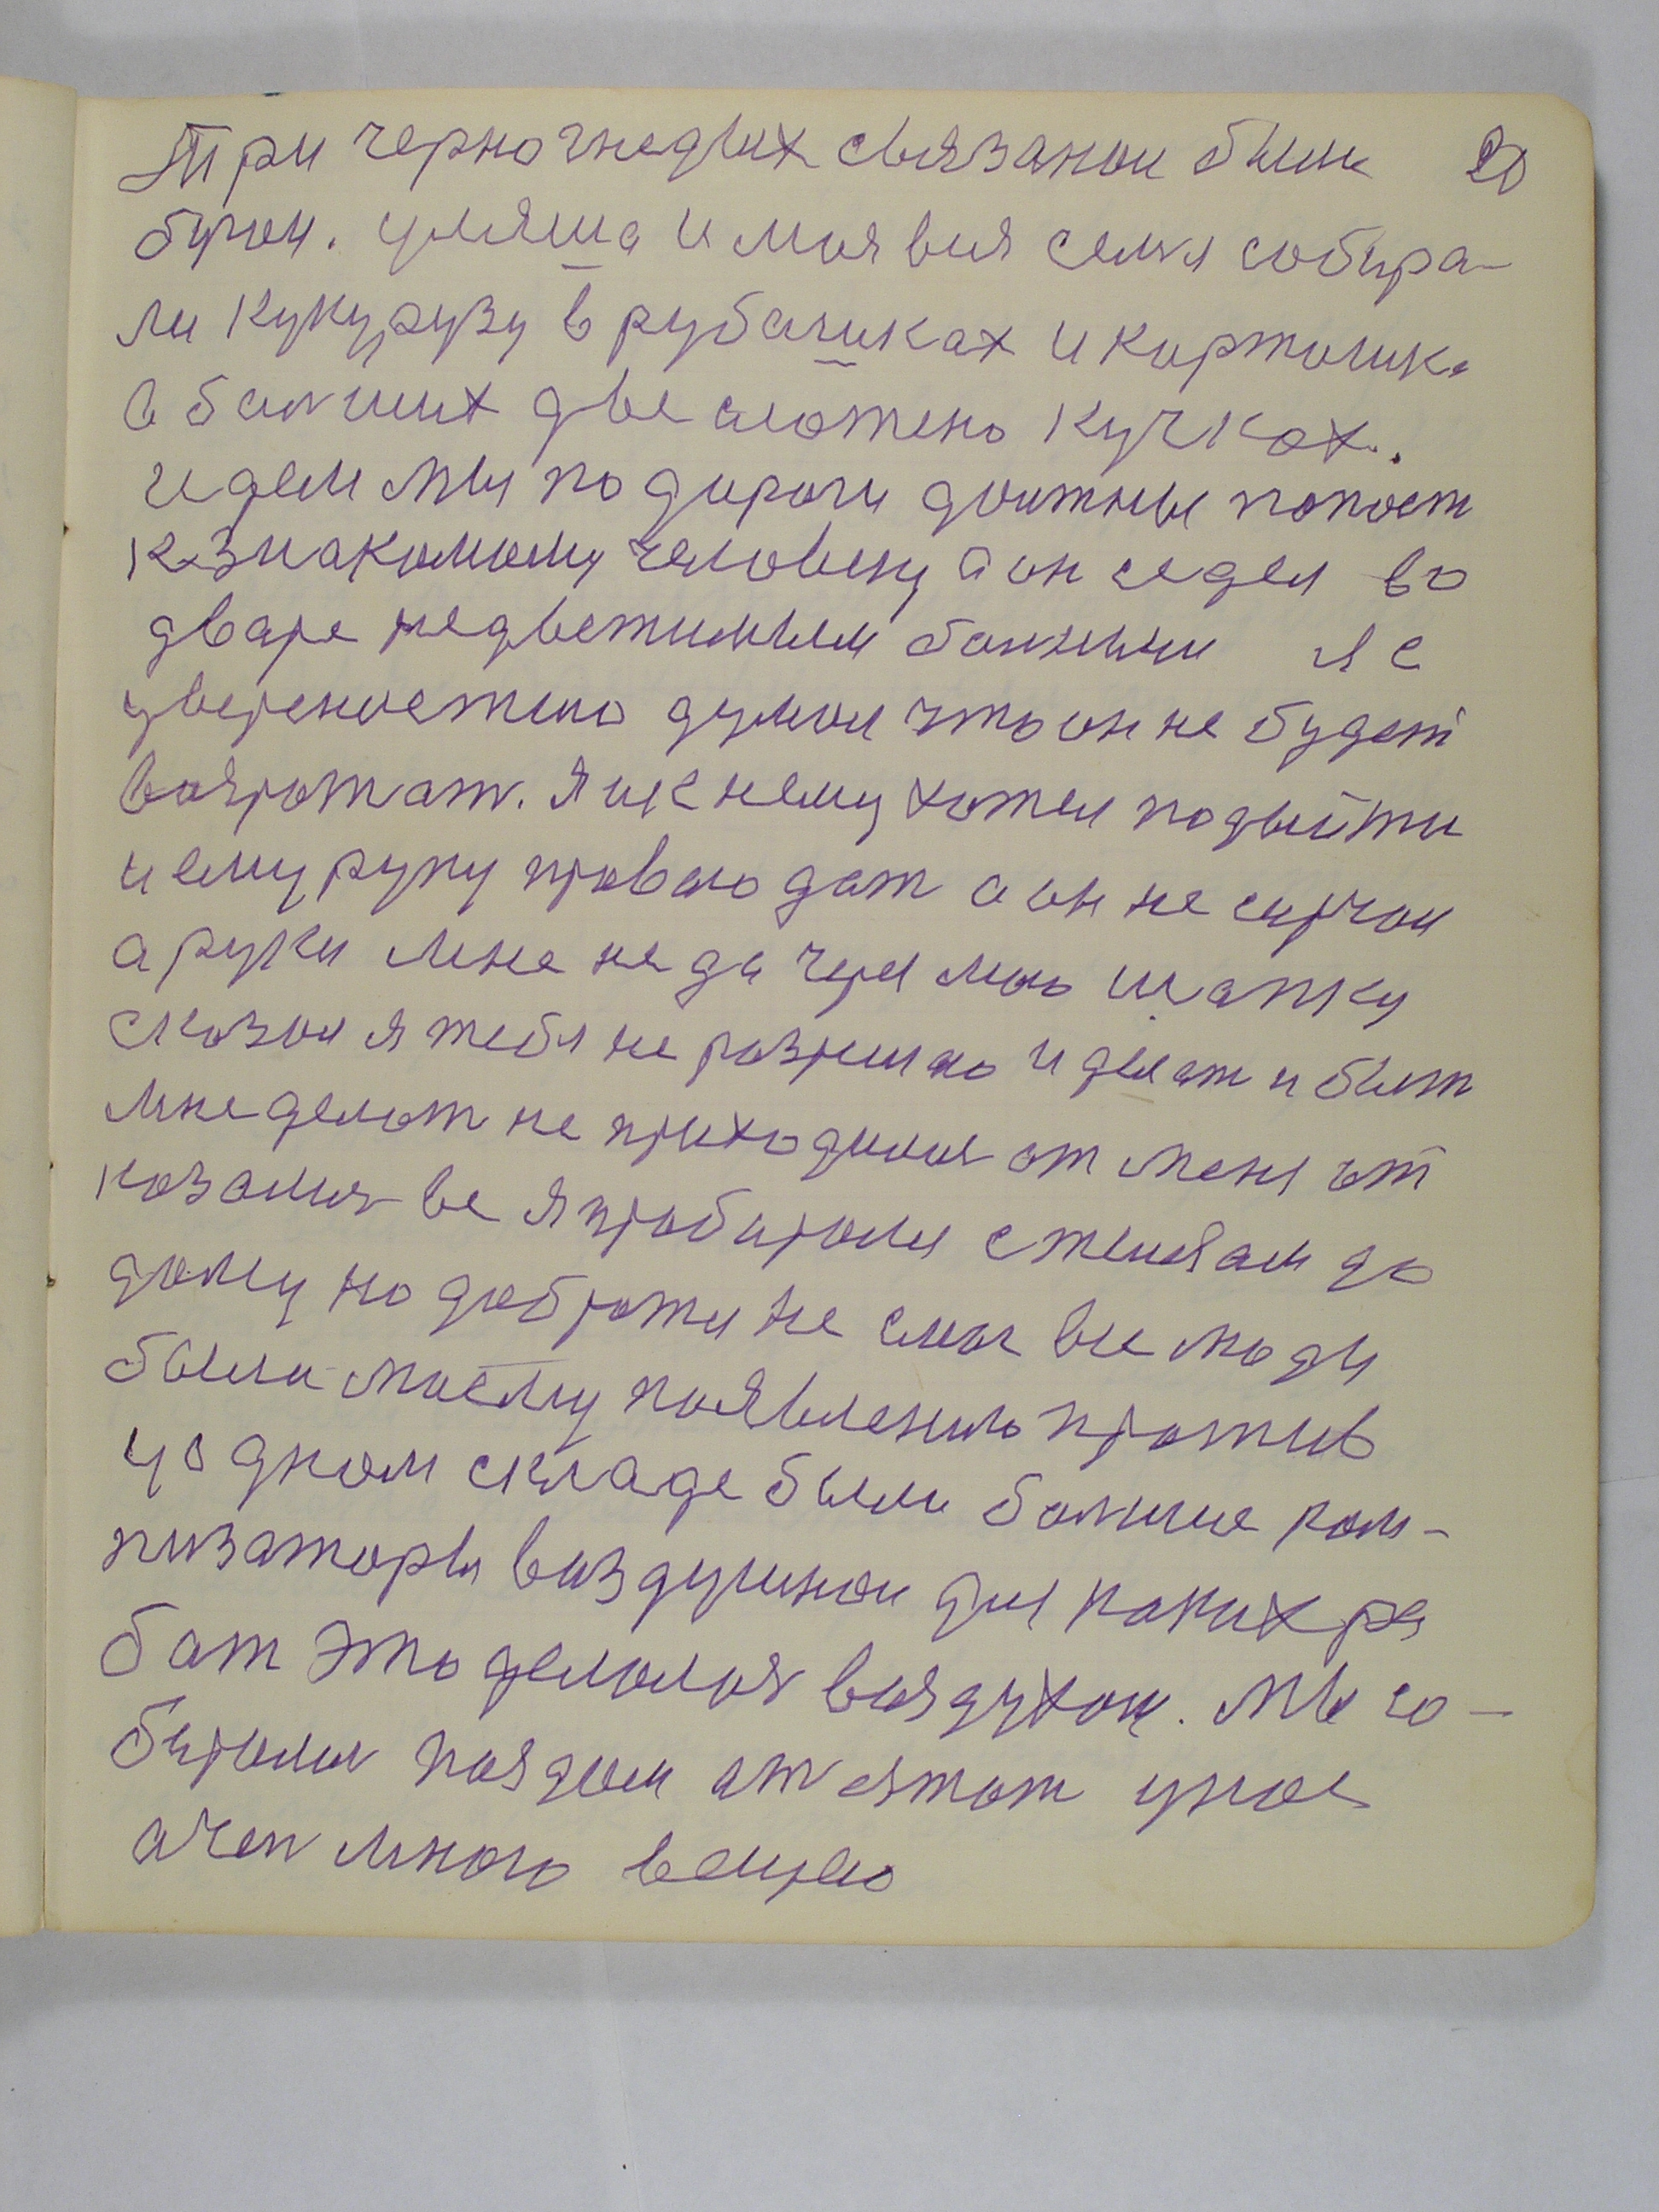 Три черногнедых связаной были 20
бугой. ульяша и моя вся семя собира-
ли кукурузу в рубашках и картошка
в балших две сложено кучках.
идем мы по дороги должны попаст
к знакомому человеку а он седел во
дваре медветимным болными я с
увереностию думал что он не будет
возрожат. Я и к нему хотел подыйти
и ему руку правою дат а он не сирчал
а руки мне не да через мою шапку
сказал я тебя не разрешаю и делат и быт
мне делат не приходилос от меня от
казалис все я пробирался стеням до
дому но добротся не смог все люди
были моему появлению против
у одном складе были болшие ком-
пизаторы воздушнои для каких ра
бат это делалос воздухом. Мы со-
бирали поядом от этот укос
ачен много